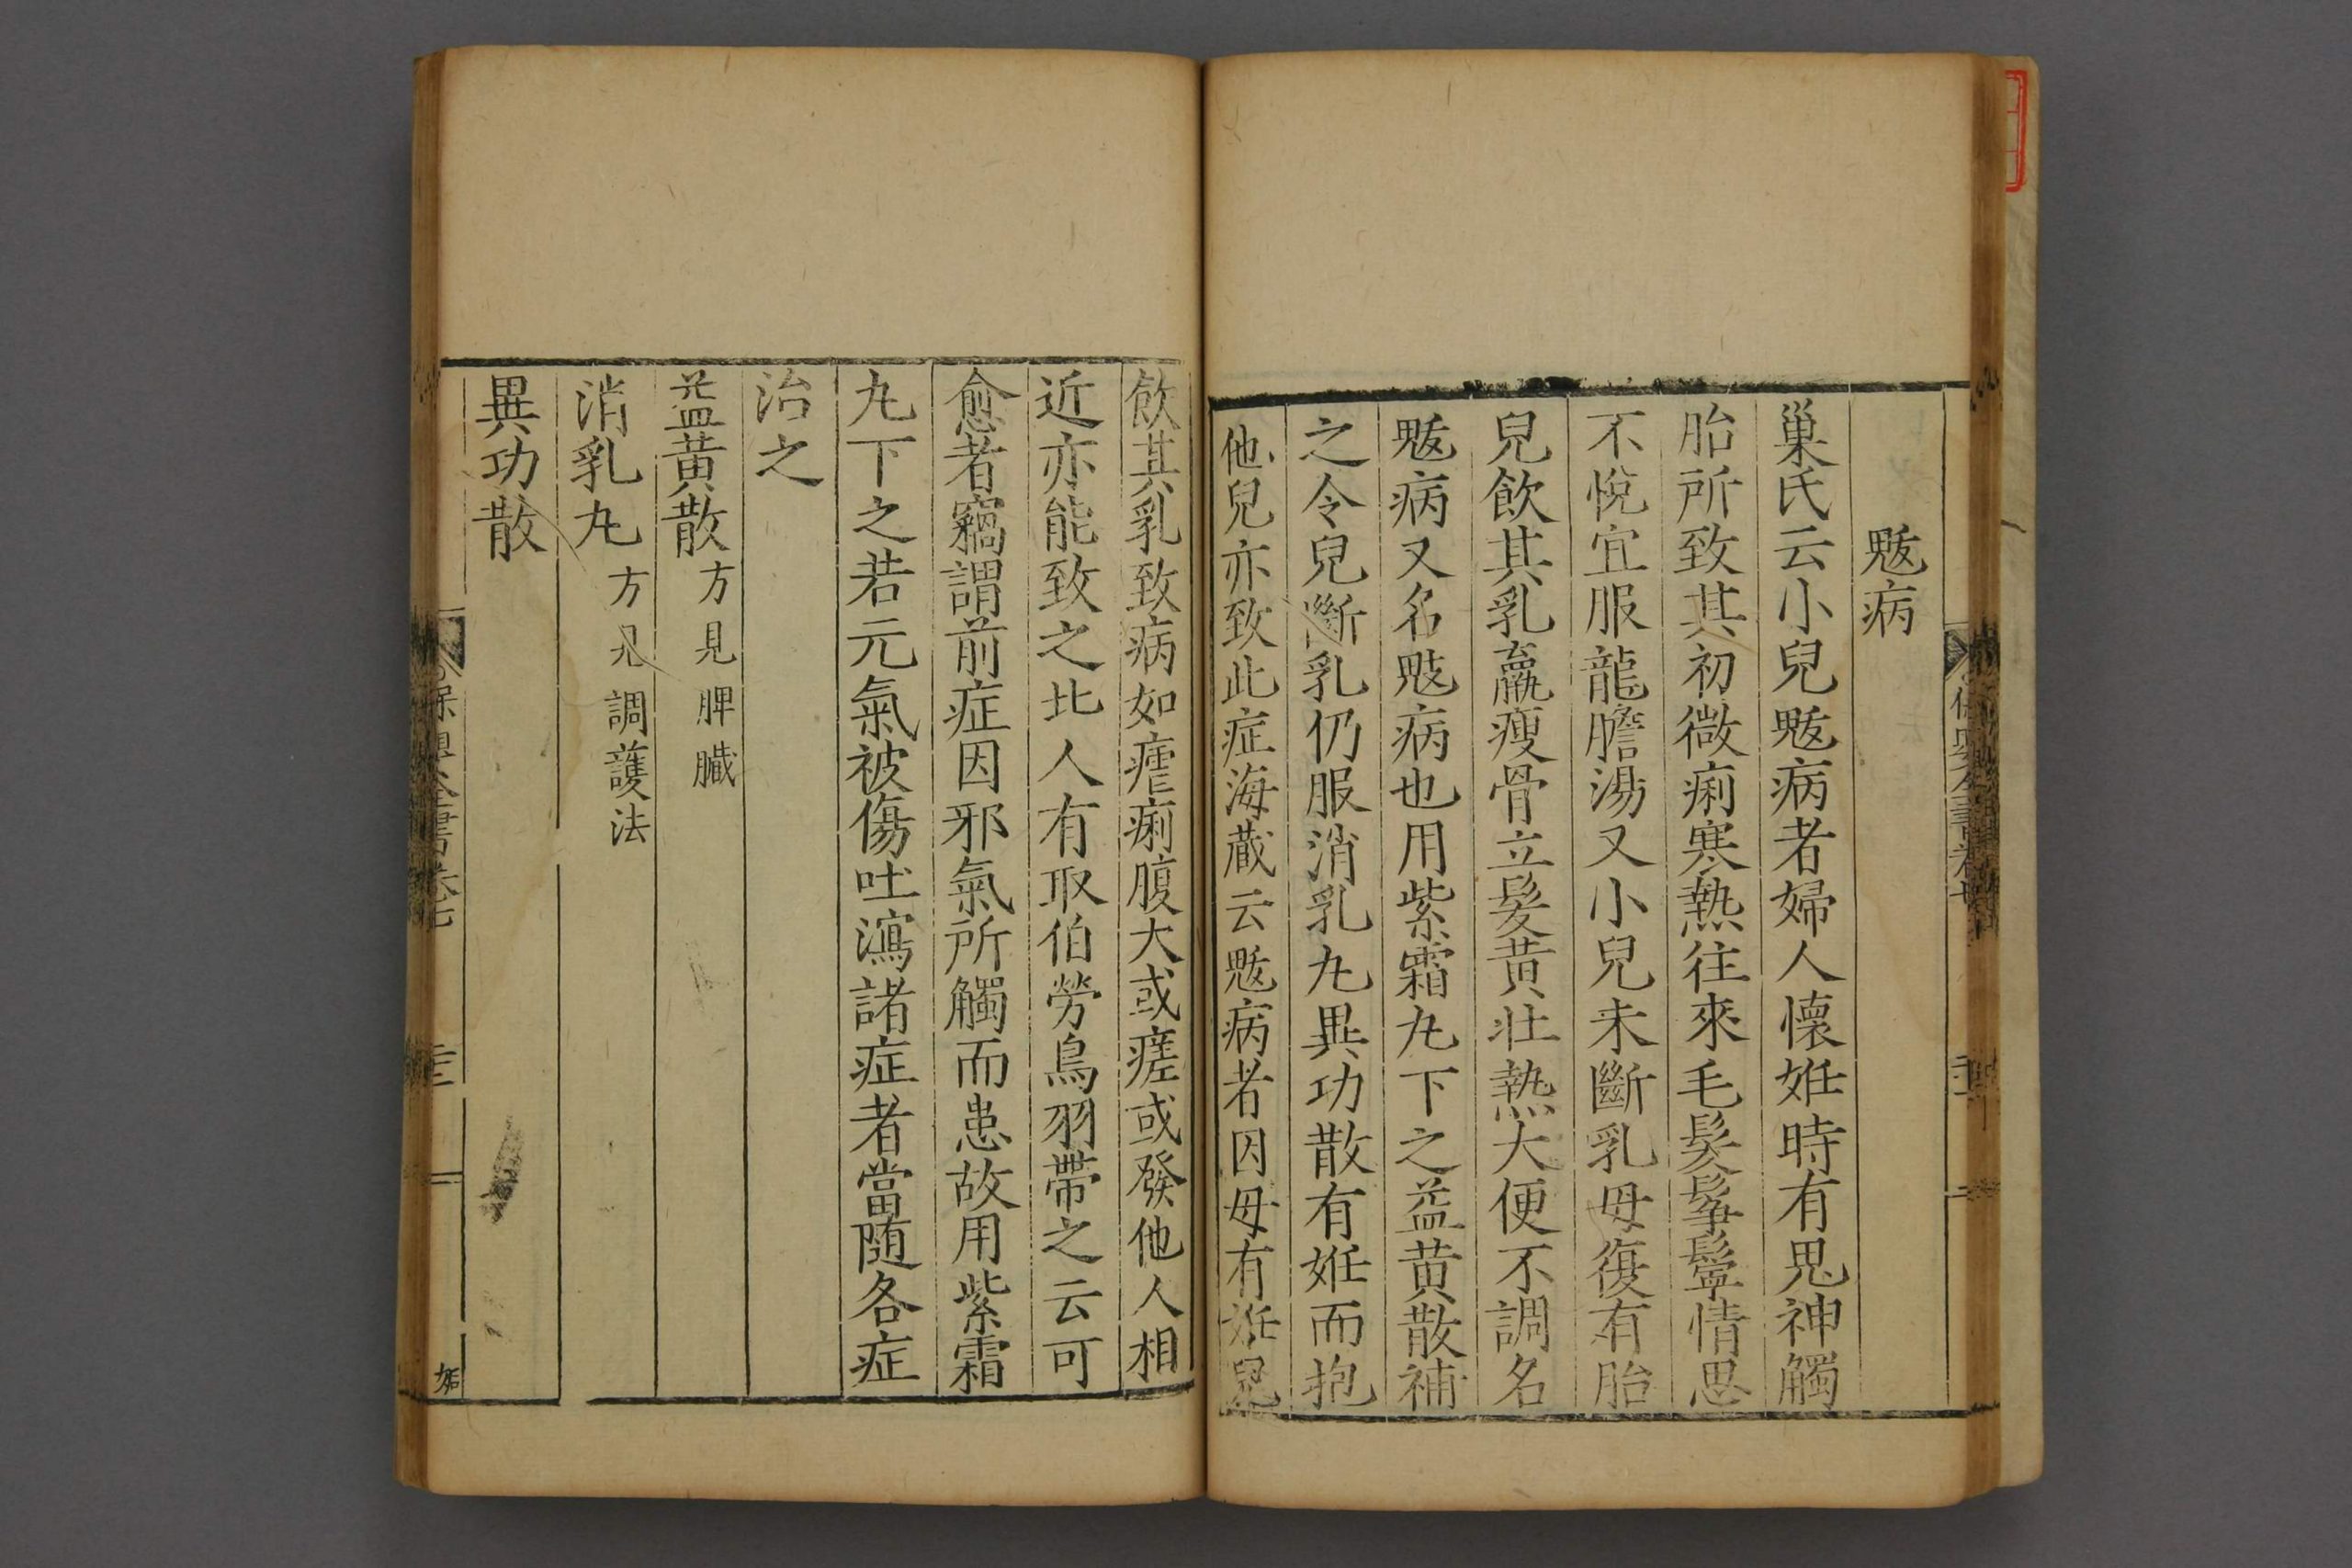 魃病
巢氏云小兒魃病者婦人懷姙時有鬼神觸
胎所致其初微痢寒熱往來毛髮鬇鬡情思
不悅宜服龍膽湯又小兒未斷乳母復有胎
兒飲其乳羸瘦骨立髮黃壯熱大便不調名
魃病又名魃病也用紫霜丸下之益黃散補
之令兒斷乳仍服消乳丸異功散有姙而抱
他兒亦致此症海藏云魃病者因母有姙兒
飲其乳致病如瘧痢腹大或瘥或發他人相
近亦能致之北人有取伯勞鳥羽帶之云可
愈者竊謂前症因邪氣所觸而患故用紫霜
丸下之若元氣被傷吐瀉諸症者當随各症
治之
益黃散方見脾臟
消乳丸方見調護法
異功散